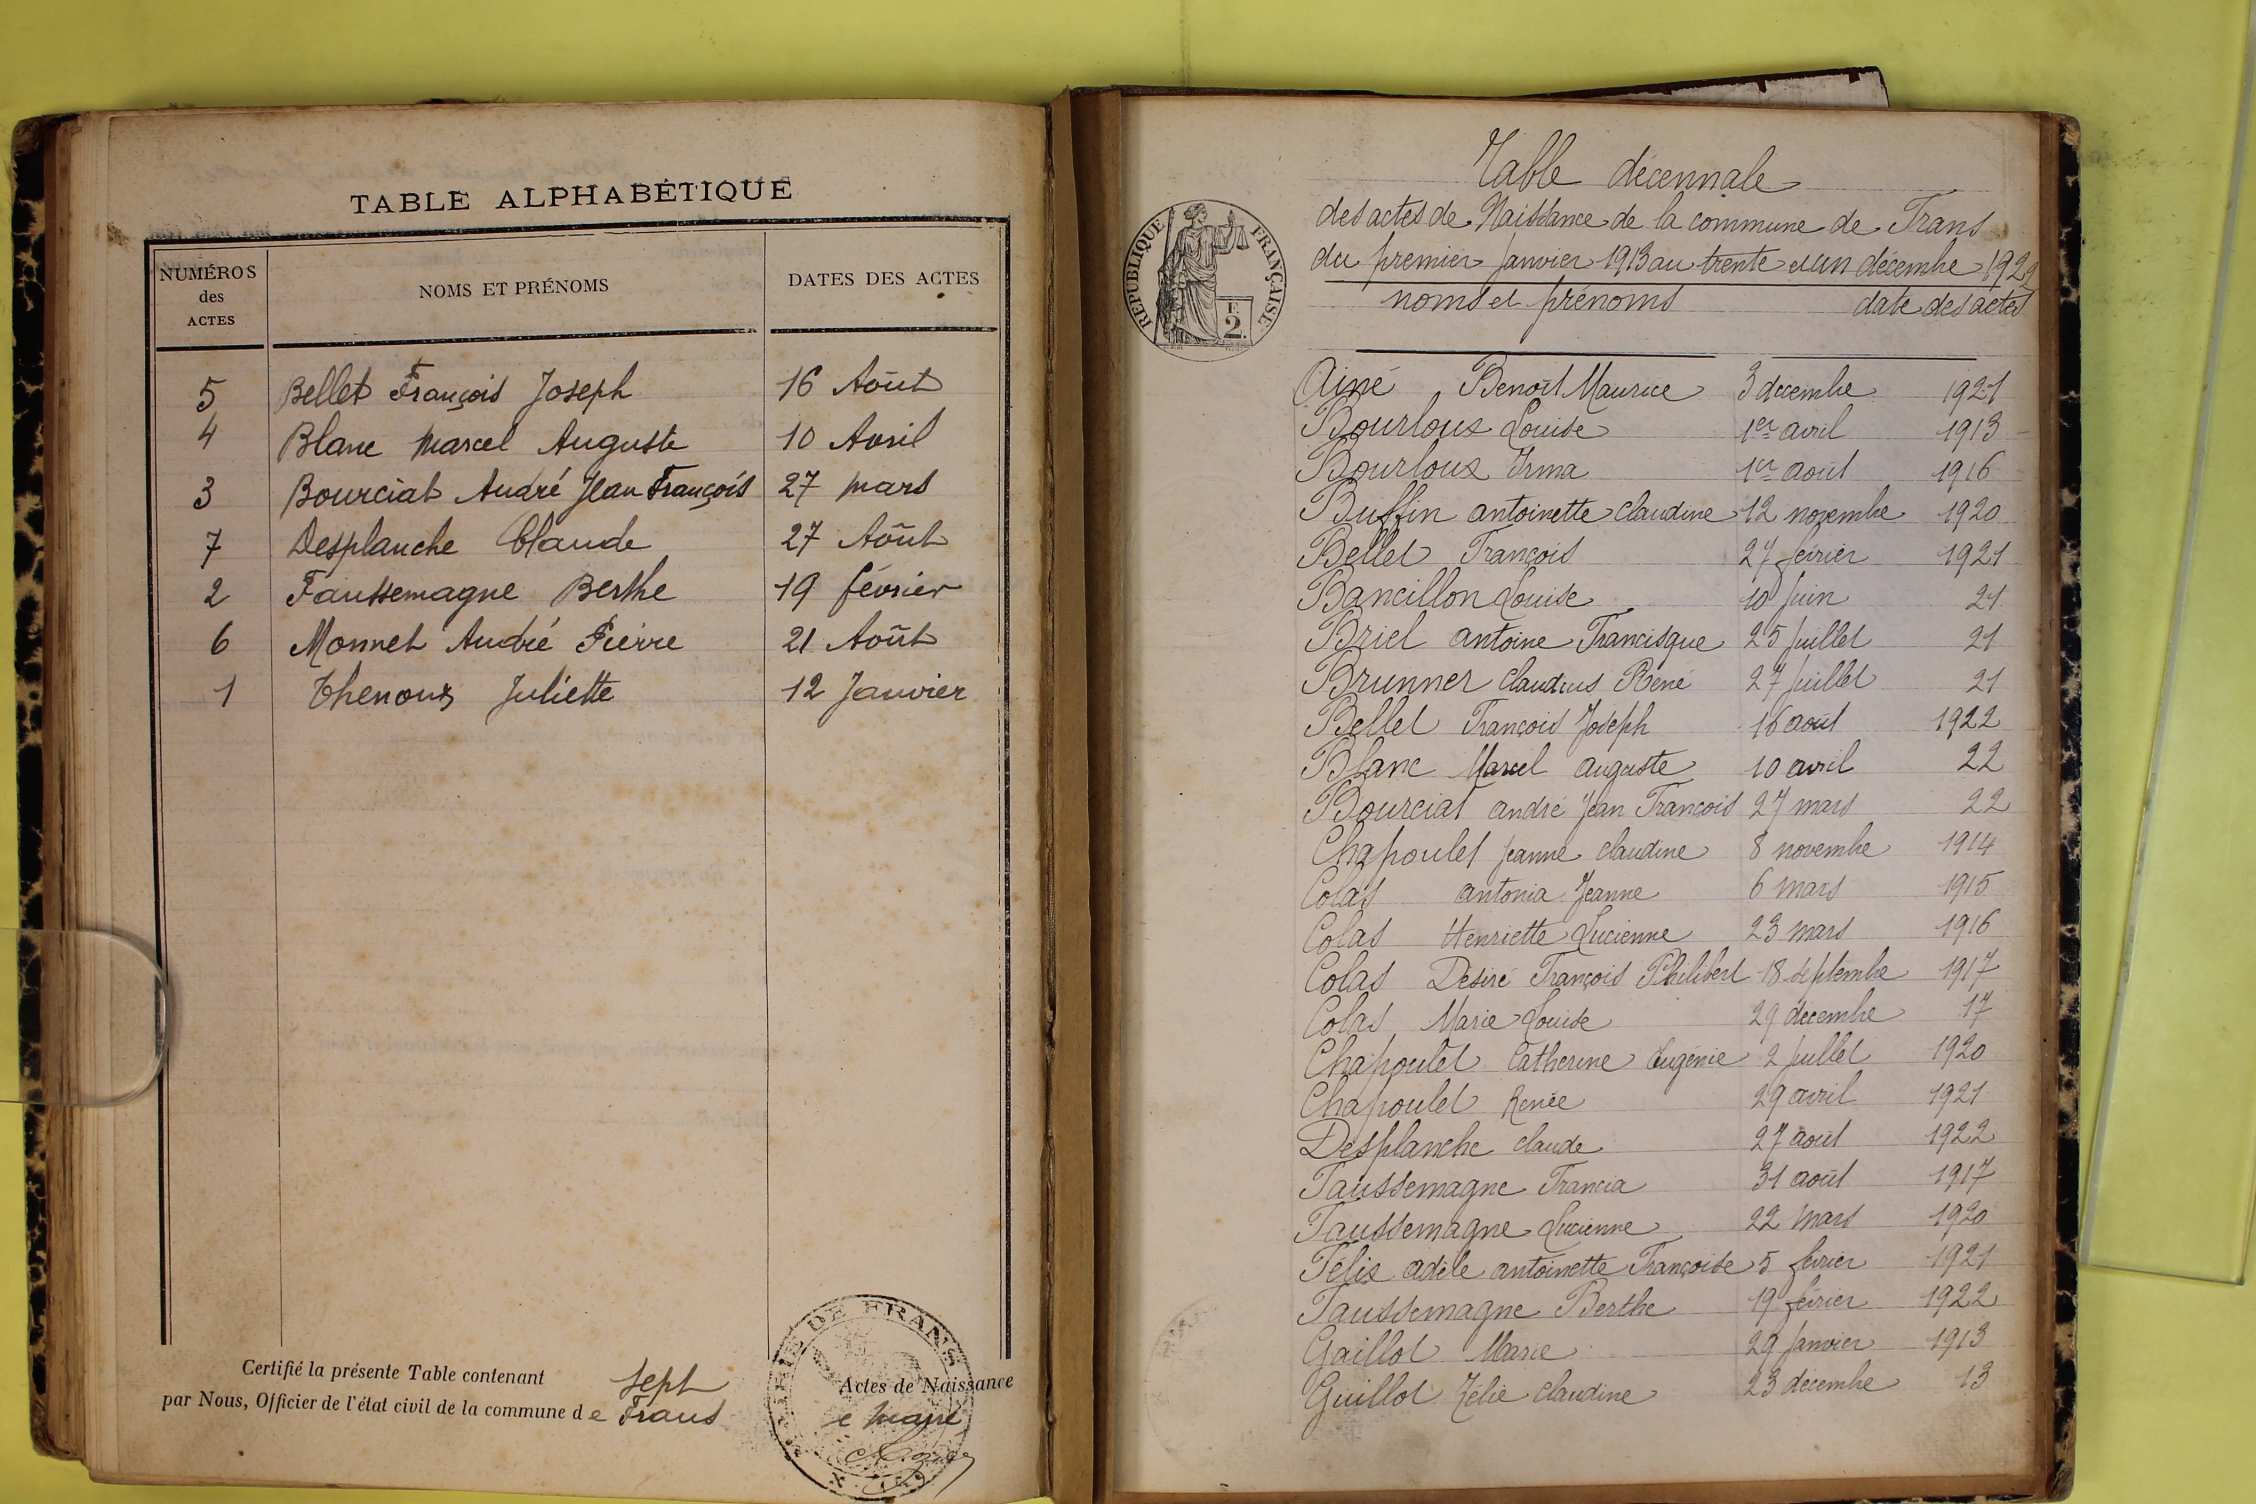 TABLE ALPHABÉTIQUE
NUMÉROS des ACTES NOMS ET PRÉNOMS DATES DES ACTES
5 Bellet François Joseph 16 Août
4 Blanc Marcel Auguste 10 Avril
3 Bourciat André Jean François 27 mars
7 Desplanche Claude 27 Août
2 Faussemagne Berthe 19 février
6 Monnet André Pierre 21 Août
1 Thenoux Juliette 12 Janvier
Certifié la présente Table contenant sept Actes de Naissance
par Nous, Officier de l'état civil de la commune de Trans le maire
MAIRIE DE TRANS
RÉPUBLIQUE FRANÇAISE
2
Table décennale
des actes de Naissance de la commune de Trans
du premier janvier 1913 au trente et un décembre 1922
noms et prénoms date des actes
Ainé Benoît Maurice 3 décembre 1921
Bourloux Louise 1er avril 1913
Bourloux Irma 1er août 1916
Buffin antoinette claudine 12 novembre 1920
Bellet François 27 février 1921
Bancillon Louise 10 juin 21
Briel antoine Francisque 25 juillet 21
Brunner claudius René 27 juillet 21
Bellet François Joseph 16 août 1922
Blanc Marcel auguste 10 avril 22
Bourciat andré Jean François 27 mars 22
Chapoulet jeanne claudine 8 novembre 1914
Colas antonia Jeanne 6 mars 1915
Colas Henriette Lucienne 23 mars 1916
Colas Désiré François Philibert 18 septembre 1917
Colas Marie Louise 29 décembre 17
Chapoulet Catherine Eugénie 2 juillet 1920
Chapoulet Renée 29 avril 1921
Desplanche claude 27 août 1922
Faussemagne Francia 31 août 1917
Faussemagne Lucienne 22 mars 1920
Félix adèle antoinette Françoise 5 février 1921
Faussemagne Berthe 19 février 1922
Gaillot Marie 29 janvier 1913
Guillot Zélie claudine 23 décembre 13